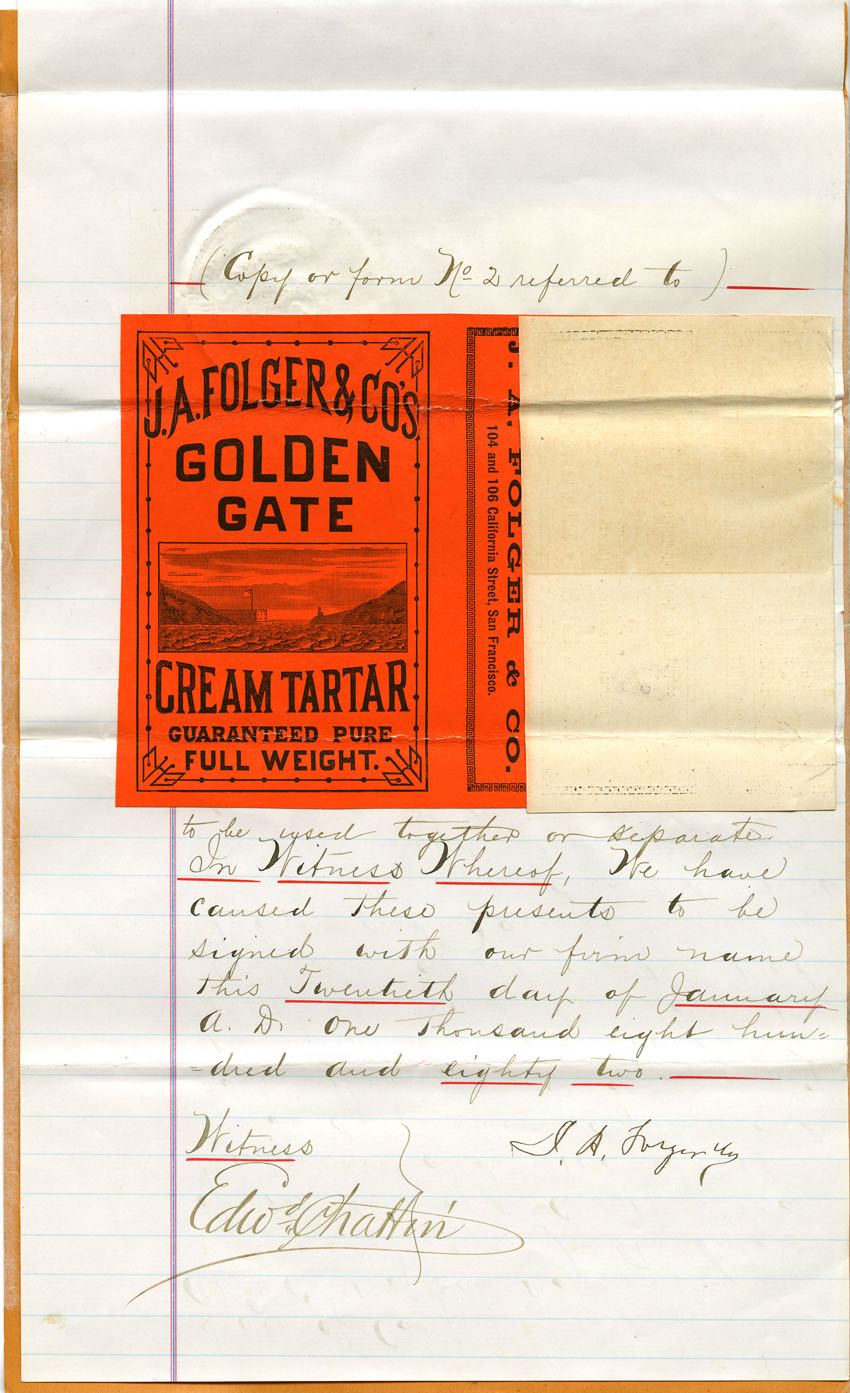 (Copy or form No 2 referred to)
J.A. FOLGER & CO'S
GOLDEN
GATE
CREAM TARTAR
GUARANTEED PURE
FULL WEIGHT.
J. A. FOLGER & CO.
104 and 106 California Street, San Francisco.
to be used together or separate.
In Witness Whereof, We have
caused these presents to be
signed with our firm name
this Twentieth day of January
A. D. One thousand eight hun=
=dred and eighty two.
Witness
J. A. Folger & Co
Edwd Chattin